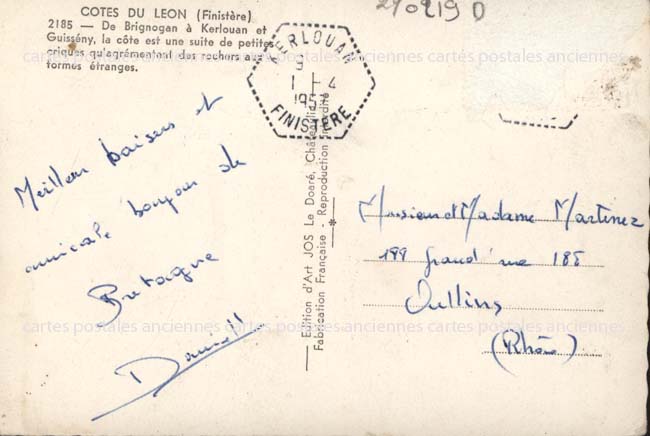 270219 D
COTES DU LEON (Finistère)
2185 — De Brignogan à Kerlouan et
Guissény, la côte est une suite de petites
criques qu'agrémentent des rochers aux
formes étranges.
KERLOUAN
FINISTÈRE
Meilleurs baisers et
amicale bonjour de
Bretagne
Edition d'Art JOS Le Doaré, Châteaulin
Fabrication Française - Reproduction interdite
Monsieur et Madame Martinez
199 grand'rue 185
Oullins
(Rhône)
cartes postales anciennes cartes postales anciennes cartes postales anciennes
cartes postales anciennes cartes postales anciennes cartes postales anciennes